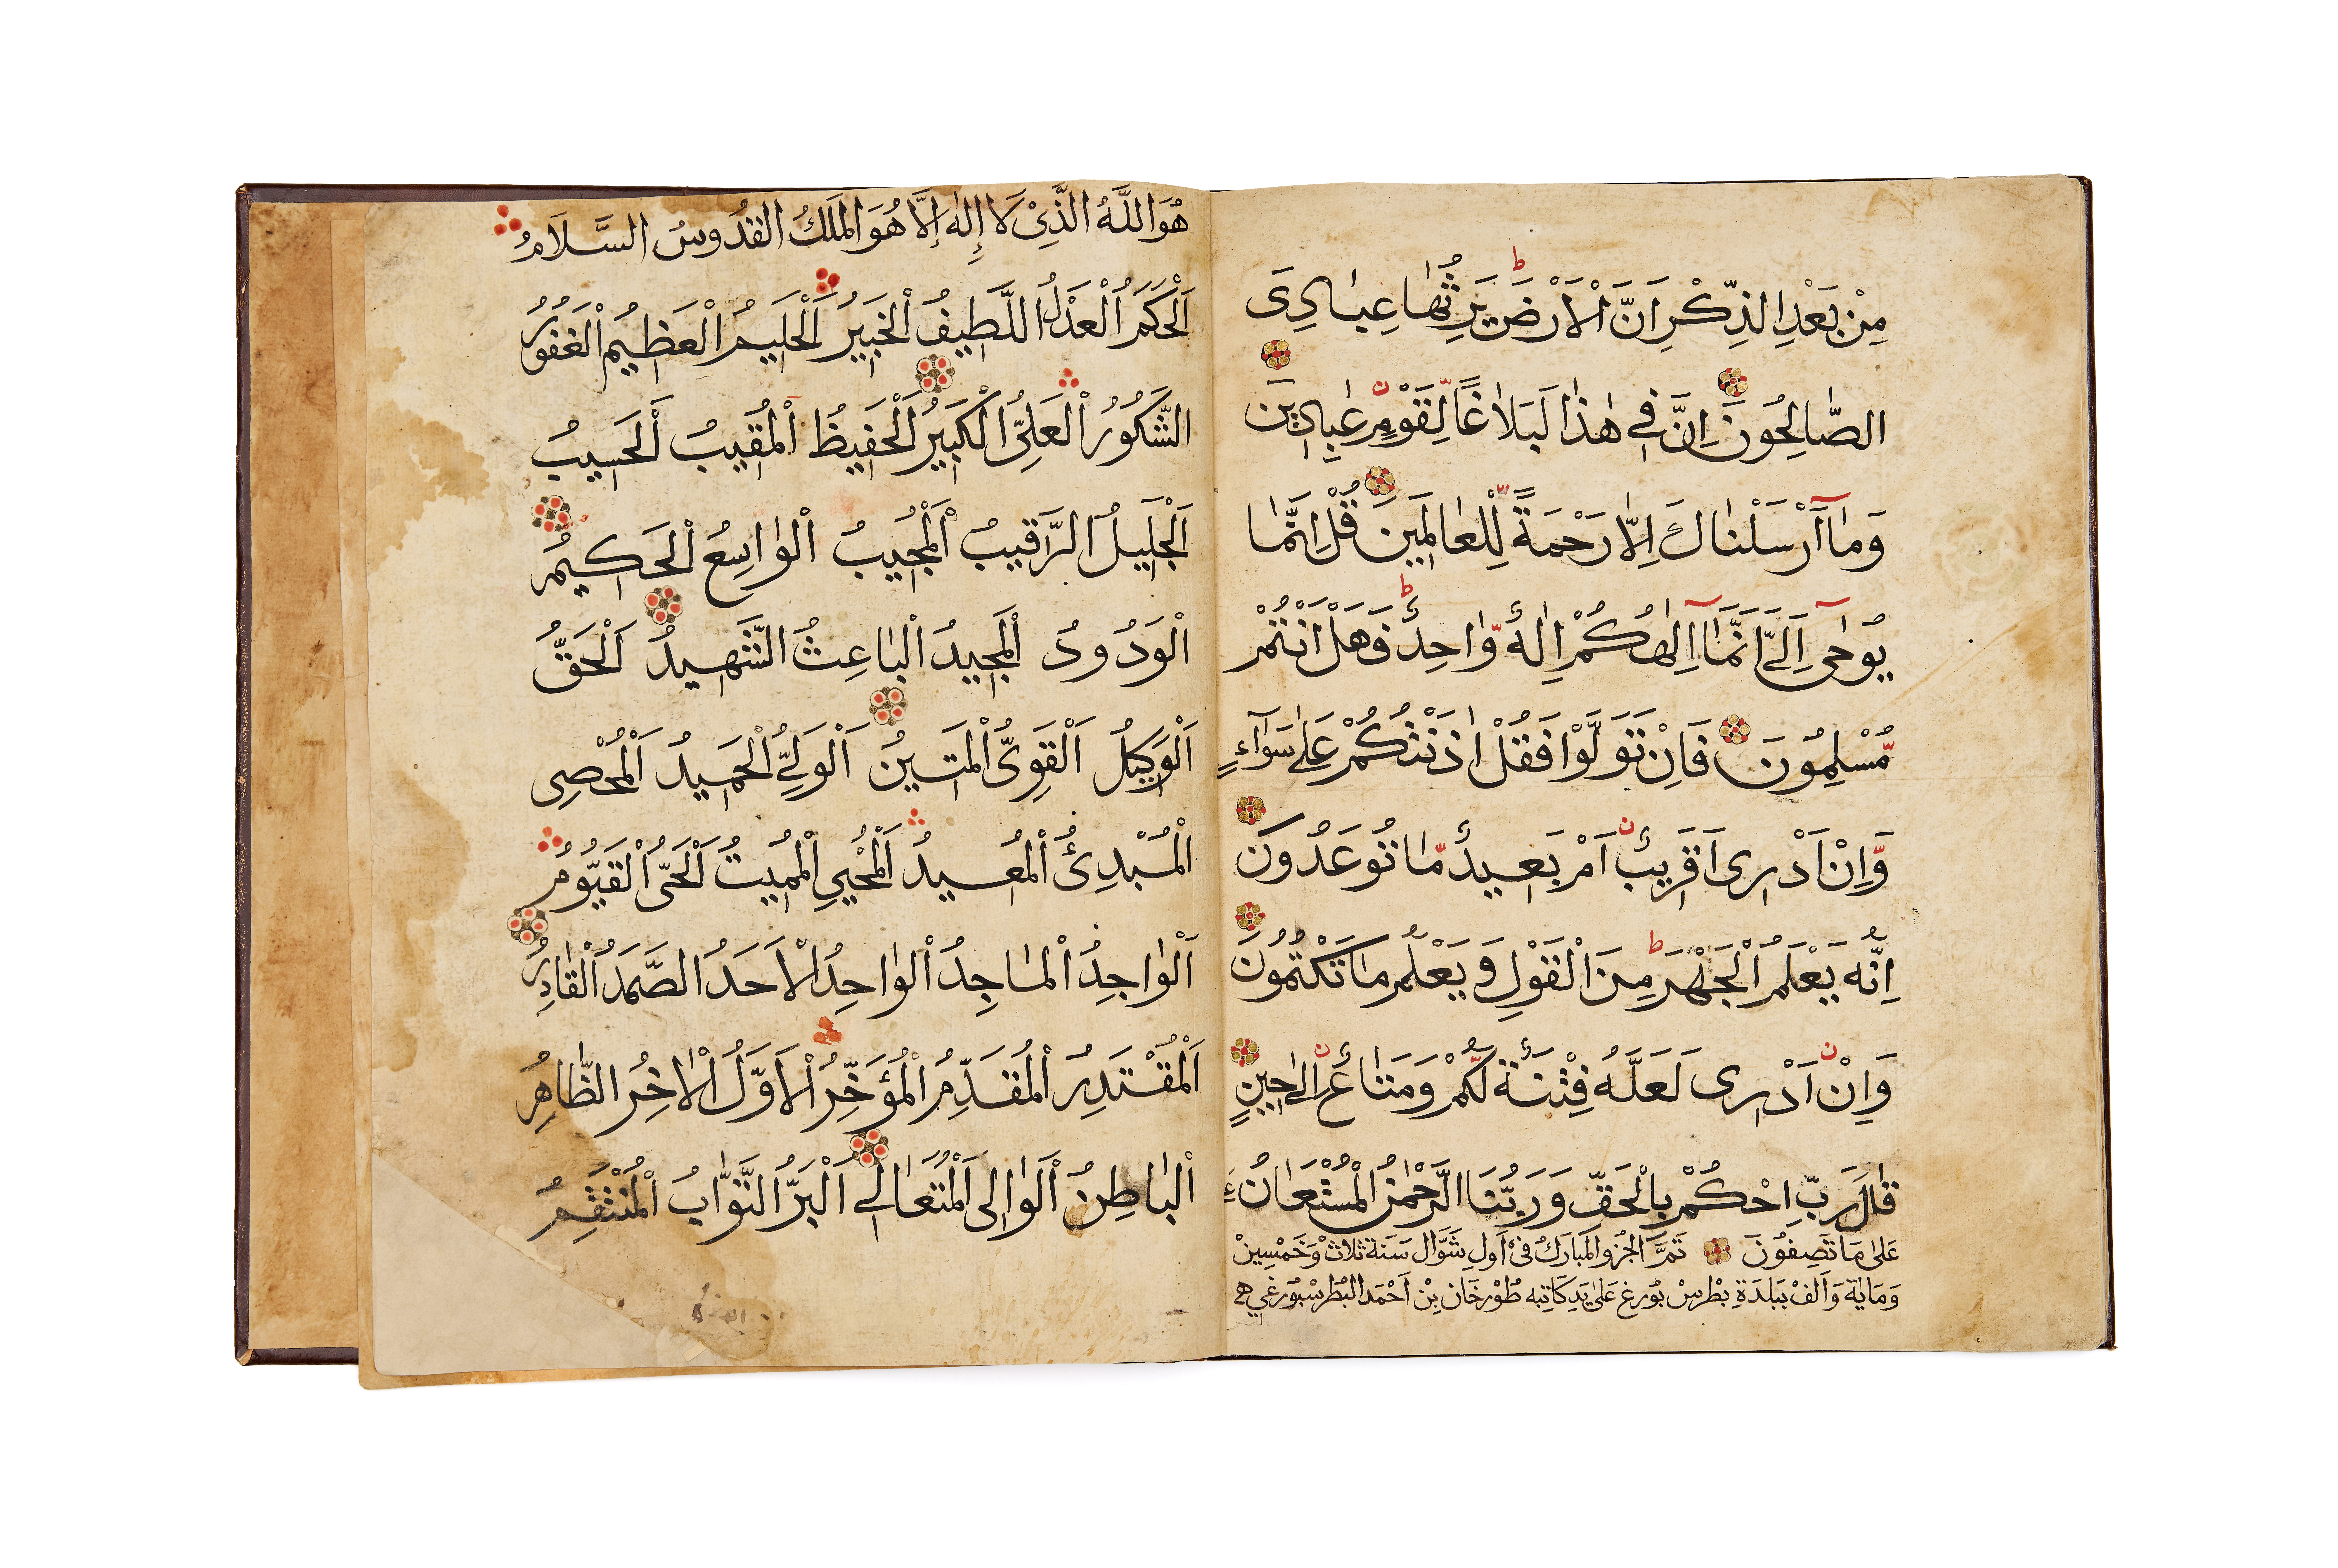 مِنْ بَعْدِ الذِّكْرِ اَنَّ الْاَرْضَ يَرِثُهَا عِبَادِىَ
الصَّالِحُونَ اِنَّ فِى هٰذَا لَبَلَاغًا لِّقَوْمٍ عَابِدِينَ
وَمَا اَرْسَلْنَاكَ اِلَّا رَحْمَةً لِّلْعَالَمِينَ قُلْ اِنَّمَا
يُوحٰى اِلَىَّ اَنَّمَا اِلٰهُكُمْ اِلٰهٌ وَّاحِدٌ فَهَلْ اَنْتُمْ
مُّسْلِمُونَ فَاِنْ تَوَلَّوْا فَقُلْ اٰذَنْتُكُمْ عَلٰى سَوَآءٍ
وَّاِنْ اَدْرِى اَقَرِيبٌ اَمْ بَعِيدٌ مَّا تُوعَدُونَ
اِنَّهُ يَعْلَمُ الْجَهْرَ مِنَ الْقَوْلِ وَيَعْلَمُ مَا تَكْتُمُونَ
وَاِنْ اَدْرِى لَعَلَّهُ فِتْنَةٌ لَّكُمْ وَمَتَاعٌ اِلٰى حِينٍ
قَالَ رَبِّ احْكُمْ بِالْحَقِّ وَرَبُّنَا الرَّحْمٰنُ الْمُسْتَعَانُ
عَلٰى مَا تَصِفُونَ تَمَّ الْجُزْو الْمُبَارَكُ فِىْ اَولِ شَوَّال سَنَة ثَلاثْ وَخَمْسِينْ
وَمَايَة وَاَلفْ بِبَلدَةِ بطْرسْ بُورغ عَلٰى يَدِ كَاتِبِه طُوْرخَان بِنْ اَحْمَد البُطرسْبُورغي
هُوَ اللَّهُ الَّذِىْ لَا إِلٰهَ إِلَّا هُوَ الْمَلِكُ الْقُدُّوسُ السَّلَامُ
اَلْحَكَمُ الْعَدْلُ اللَّطِيفُ الْخَبِيرُ اَلْحَلِيمُ الْعَظِيمُ الْغَفُورُ
الشَّكُورُ الْعَلِىُّ الْكَبِيرُ اَلْحَفِيظُ الْمُقِيبُ اَلْحَسِيبُ
اَلْجَلِيلُ الرَّقِيبُ الْمُجِيبُ الْوَاسِعُ الْحَكِيمُ
الْوَدُودُ الْمَجِيدُ الْبَاعِثُ الشَّهِيدُ اَلْحَقُّ
اَلْوَكِيلُ اَلْقَوِىُّ الْمَتِينُ اَلْوَلِىُّ الْحَمِيدُ اَلْمُحْصِى
الْمُبْدِئُ الْمُعِيدُ اَلْمُحْيِى الْمُمِيتُ اَلْحَىُّ الْقَيُّومُ
اَلْوَاجِدُ الْمَاجِدُ الْوَاحِدُ الْاَحَدُ الصَّمَدُ الْقَادِرُ
اَلْمُقْتَدِرُ الْمُقَدِّمُ الْمُؤَخِّرُ الْاَوَّلُ الْاٰخِرُ الظَّاهِرُ
الْبَاطِنُ اَلْوَالِى اَلْمُتَعَالِى اَلْبَرُّ التَّوَّابُ الْمُنْتَقِمُ